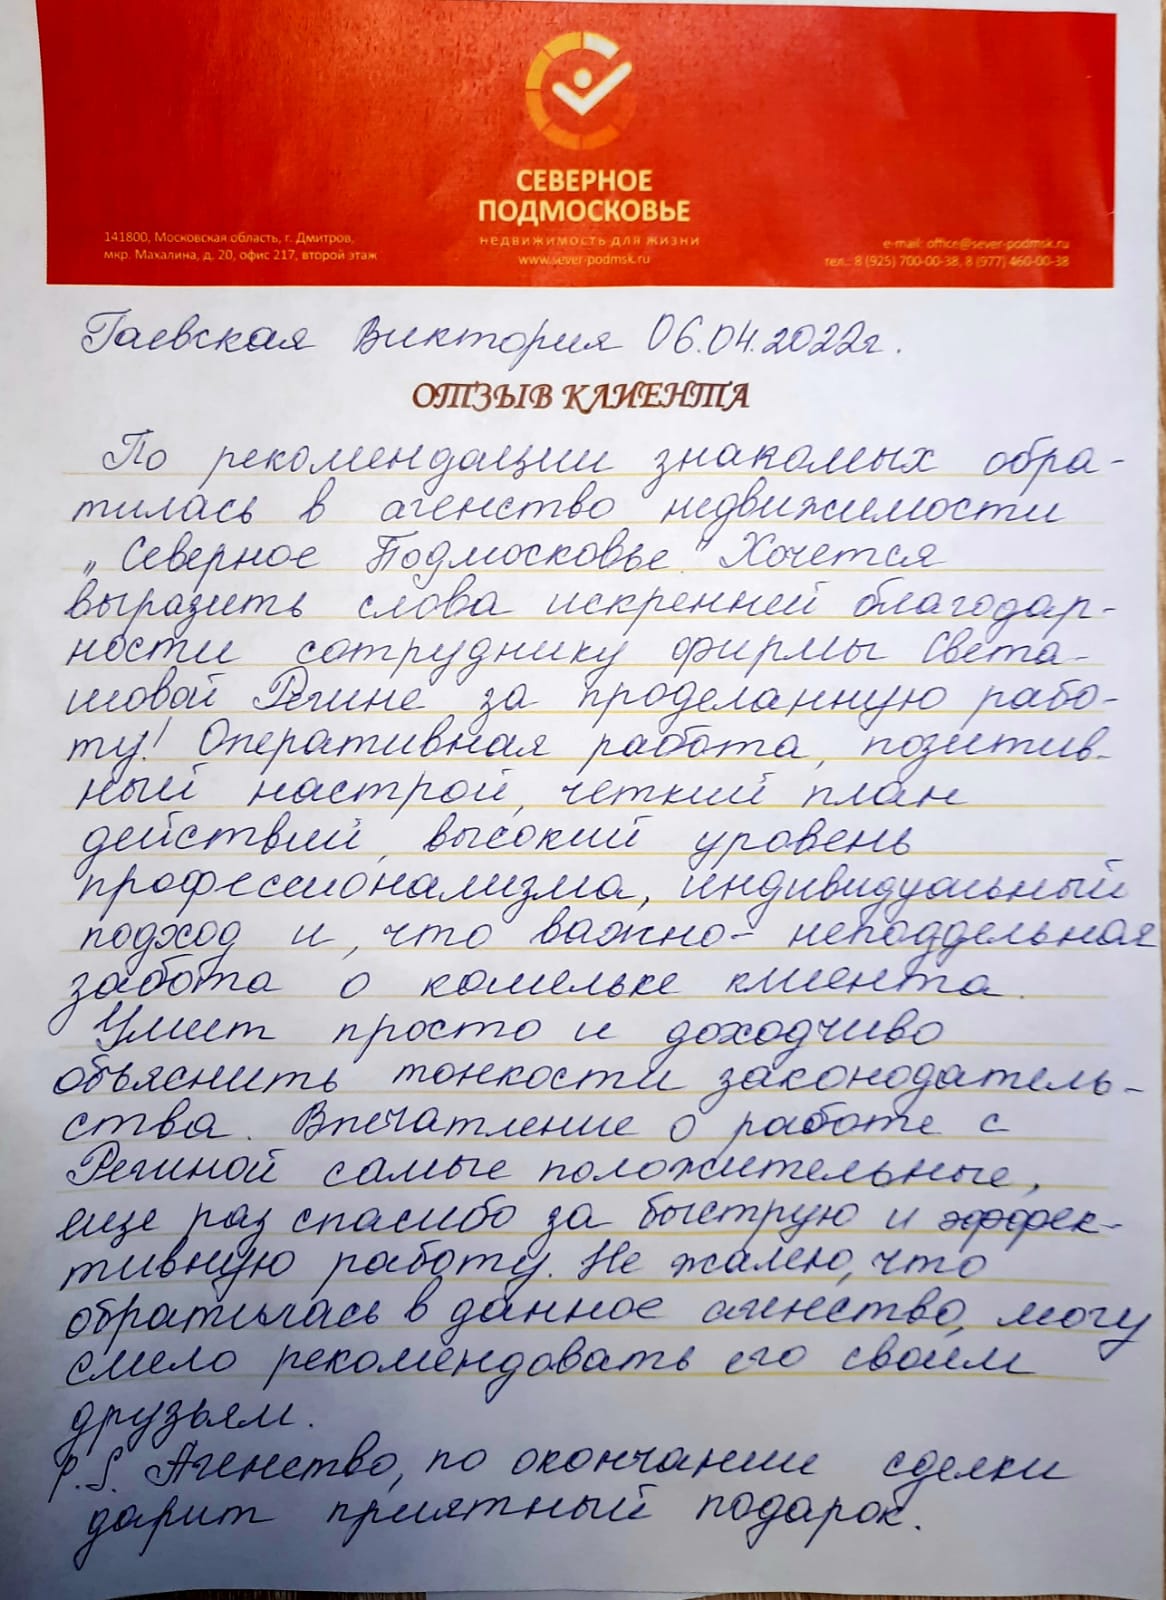 СЕВЕРНОЕ
ПОДМОСКОВЬЕ
недвижимость для жизни
www.sever-podmsk.ru
141800, Московская область, г. Дмитров,
мкр. Махалина, д. 20, офис 217, второй этаж
e-mail: office@sever-podmsk.ru
тел.: 8 (925) 700-00-38, 8 (977) 460-00-38
Гаевская Виктория 06.04.2022г.
ОТЗЫВ КЛИЕНТА
По рекомендации знакомых обра-
тилась в агенство недвижимости
„Северное Подмосковье." Хочется
выразить слова искренней благодар-
ности сотруднику фирмы Света-
шовой Регине за проделанную рабо-
ту! Оперативная работа, позитив-
ный настрой, четкий план
действий, высокий уровень
профессионализма, индивидуальный
подход и, что важно - неподдельная
забота о комельке клиента.
Умеет просто и доходчиво
объяснить тонкости законодатель-
ства. Впечатление о работе с
Региной самые положительные,
еще раз спасибо за быструю и эффек-
тивную работу. Не жалею, что
обратилась в данное агенство, могу
смело рекомендовать его своим
друзьям.
P.S. Агенство, по окончании сделки
дарит приятный подарок.